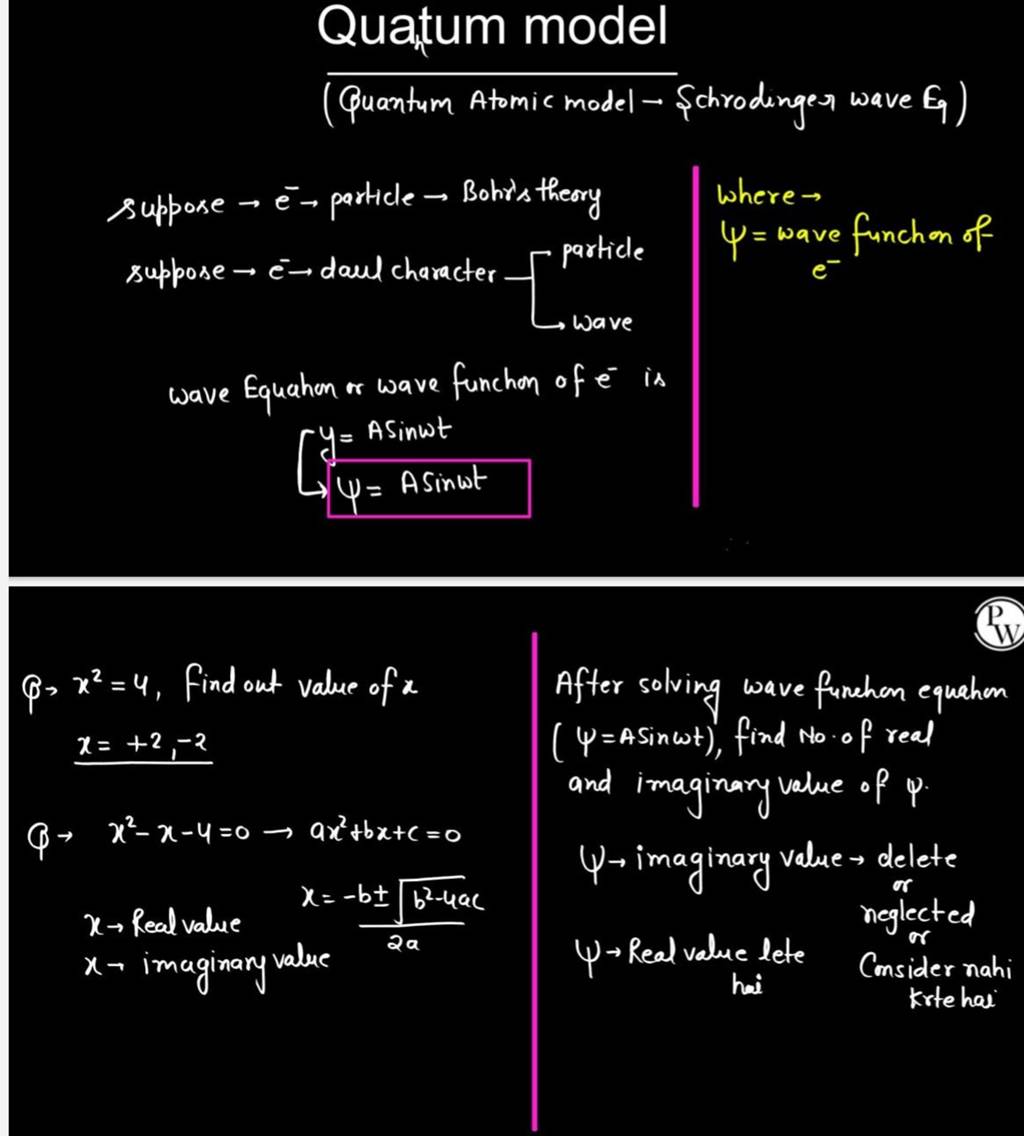 Quatum model
n
(Quantum Atomic model → Schrodinger wave Eq)
suppose → e⁻ → particle → Bohr's theory
suppose → e⁻ → daul character
particle
wave
wave Equation or wave function of e⁻ is
y = A Sinωt
ψ = A Sinωt
where →
ψ = wave function of
e⁻
PW
Q → x² = 4, find out value of x
x = +2, -2
Q → x² - x - 4 = 0 → ax² + bx + c = 0
x = -b ± √b² - 4ac
2a
x → Real value
x → imaginary value
After solving wave function equation
(ψ = A Sin ωt), find No. of real
and imaginary value of ψ.
ψ → imaginary value → delete
or
neglected
or
Consider nahi
krte hai
ψ → Real value lete
hai